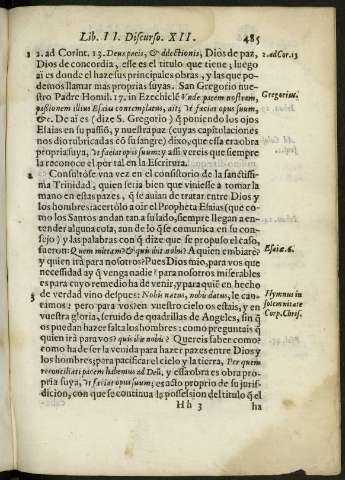 Lib. II. Discurso. XII. 485
2. ad Corint. 13. Deus pacis, & dilectionis, Dios de paz,
Dios de concordia, esse es el titulo que tiene; luego
aì es donde el haze sus principales obras, y las que po-
demos llamar mas propias suyas. San Gregorio nue-
stro Padre Homil. 17. in Ezechielē Vnde pacem nostrem,
passionem illius Esaia contemplatus, ait; Vt faciat opus suum,
&c. De aì es (dize S. Gregorio) q̃ poniendo los ojos
Esaias en su passiõ, y nuestra paz (cuyas capitulaciones
nos dio rubricadas cõ su sangre) dixo, que essa era obra
propria suya, Vt faciat opus suum: y assi vereis que siempre
la reconoce el por tal en la Escritura.
Consultóse vna vez en el consistorio de la sanctissi
ma Trinidad, quien seria bien que viniesse a tomar la
mano en essas pazes, q̃ se auian de tratar entre Dios y
los hombres: acertólo a oîr el Propheta Esaias (que co-
mo los Santos andan tan a su lado, siempre llegan a en-
tender alguna cosa, aun de lo q̃ se comunica en su con-
sejo) y las palabras con q̃ dize que se propuso el caso,
fueron: Quem mittam? & quis ibit nobis? A quien embiarè?
y quien irà para nosotros? Pues Dios mio, para vos que
necessidad ay q̃ venga nadie? para nosotros miserables
es para cuyo remedio ha de venir, y para quiē en hecho
de verdad vino despues: Nobis natus, nobis datus, le can-
timos: pero para vos? en vuestro cielo os estais, y en
vuestra gloria, seruido de quadrillas de Angeles, sin q̃
os puedan hazer falta los hombres: como preguntais q̃
quien irà para vos? quis ibit nobis? Quereis saber como?
como ha de ser la venida para hazer pazes entre Dios y
los hombres; para pacificar el cielo y la tierra, Per quem
reconciliati pacem habemus ad Deū, y essa obra es obra pro-
pria suya, Vt faciat opus suum; es acto proprio de su juris-
dicion, con que se continua la possession del titulo q̃ el
Hh 3 ha
2. ad Cor. 13
Gregorius.
Esaiæ. 6.
Hymnus in
solemnitate
Corp. Chris.